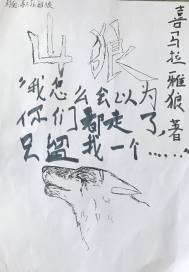 山狼
喜马拉雅狼 著
“我怎么会以为
你们都走了，
只留我一个……”